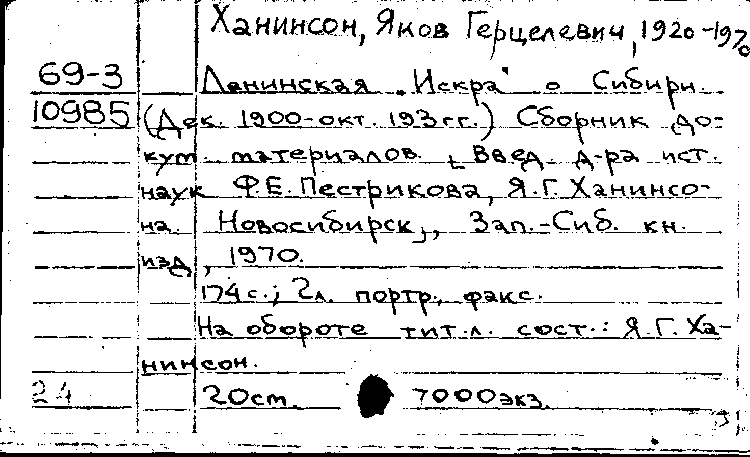 Ханинсон, Яков Герцелевич, 1920-1970
69-3 Ленинская „Искра" о Сибири.
10985 (Дек. 1900-окт. 193 гг.) Сборник до-
кум. материалов. [Введ. д-ра ист.
наук Ф.Е. Пестрикова, Я.Г. Ханинсо-
на. Новосибирск], Зап.-Сиб. кн.
изд, 1970.
174 с.; 2 л. портр., факс.
На обороте тит. л. сост.: Я.Г. Ха-
нинсон.
24 20 cm. 7000 экз.